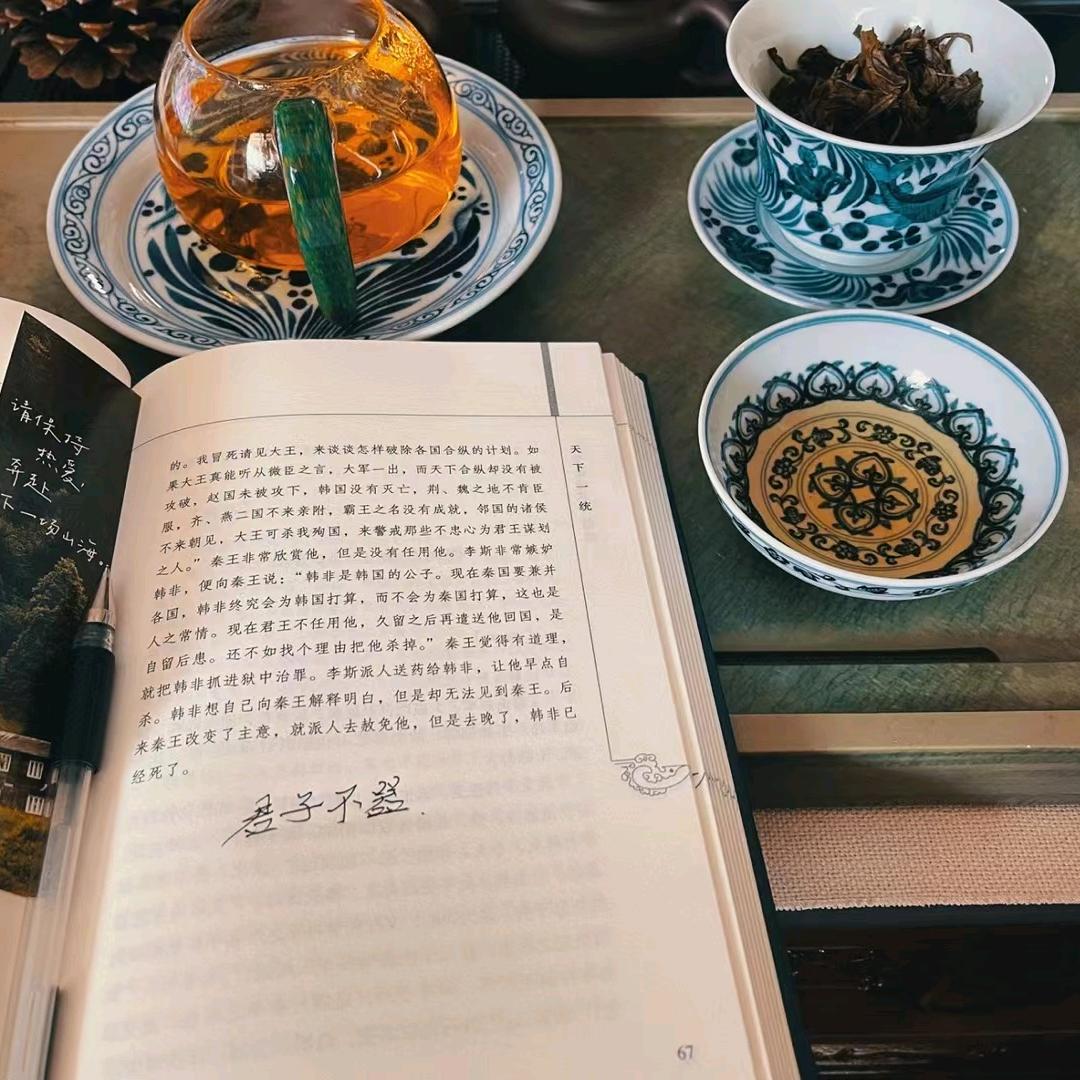 请保持
热爱，
奔赴
下一场山海。
的。我冒死请见大王，来谈谈怎样破除各国合纵的计划。如
果大王真能听从微臣之言，大军一出，而天下合纵却没有被
攻破，赵国未被攻下，韩国没有灭亡，荆、魏之地不肯臣
服，齐、燕二国不来亲附，霸王之名没有成就，邻国的诸侯
不来朝见，大王可杀我殉国，来警戒那些不忠心为君王谋划
之人。”秦王非常欣赏他，但是没有任用他。李斯非常嫉妒
韩非，便向秦王说：“韩非是韩国的公子。现在秦国要兼并
各国，韩非终究会为韩国打算，而不会为秦国打算，这也是
人之常情。现在君王不任用他，久留之后再遣送他回国，是
自留后患。还不如找个理由把他杀掉。”秦王觉得有道理，
就把韩非抓进狱中治罪。李斯派人送药给韩非，让他早点自
杀。韩非想自己向秦王解释明白，但是却无法见到秦王。后
来秦王改变了主意，就派人去赦免他，但是去晚了，韩非已
经死了。
君子不器.
天下一统
67